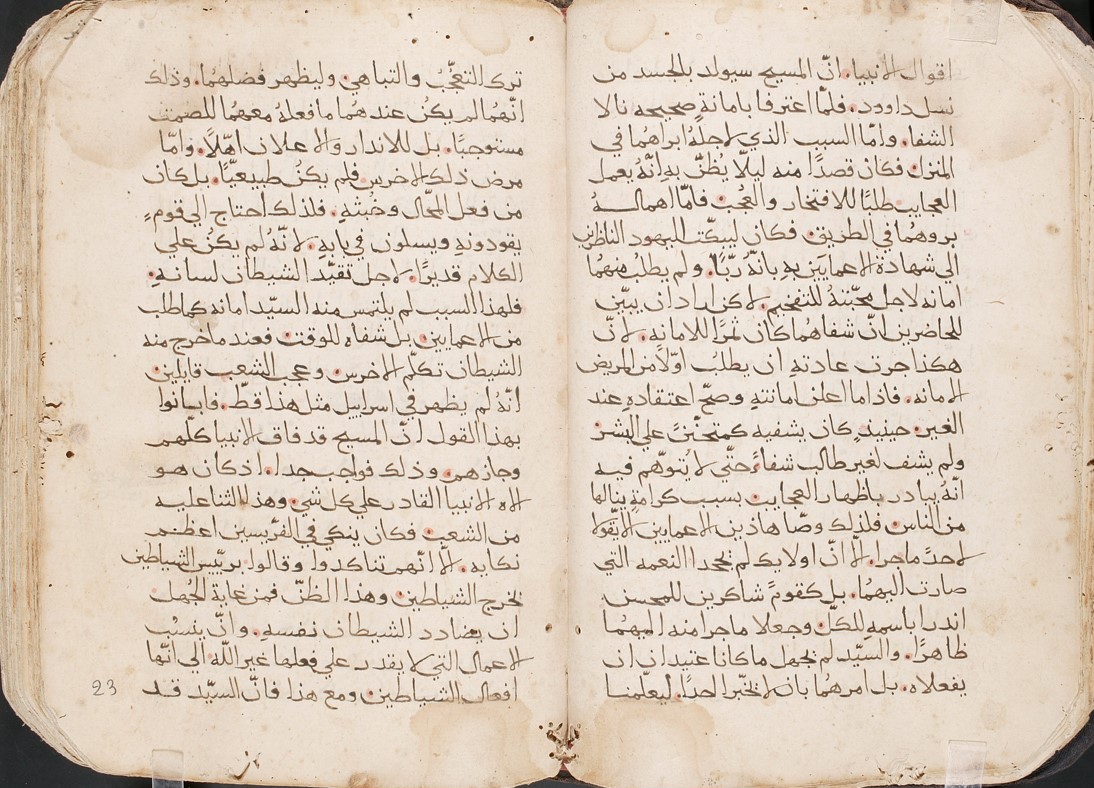 اقوال الانبيا. انّ المسيح سيولد بالجسد من
نسل داوود. فلمّا اعترفا بامانةٍ صحيحه نالا
الشفا. وامّا السبب الذي لاجلهُ ابراهُما في
المنزل فكان قصدًا منه ليلّا يُظنّ به انّهُ يعمل
العجايب طلبًا للافتخار والعُجب فامّا اهمالــهُ
بروهُما في الطريق. فكان ليبكّت اليهود الناظرين
الي شهادة الاعمايَين بهِ بانّهُ ربًّا. ولم يطلبُ منهُما
امانه لاجل محبّتهُ للتفخيم. لاكن اراد ان يبيّن
للحاضرين انّ شفاهُما كان ثمرًا للامانهِ. لانّ
هكذا جرت عادتهِ ان يطلبُ اوّلًا من المريض
الامانه. فاذا ما اعلن امانتهِ وصحّ اعتقادهِ عند
الغير. حينيدٍ كان يشفيه كمتحنّنٍ علي البشر
ولم يشف لغير طالب شفاءً حتّي لا يُتوهّم فيه
انهُ يبادر باظهار العجايب بسبب كرامةٍ ينالها
من الناس. فلذلك وصّا هاذين الاعمايين الّا يقولا
لاحدً ما جرا. الّا انّ اولايك لم يجحدا النعمه التي
صارت اليهُما. بل كقومٍ شاكرين للمحسن
اندرا باسمهِ للكلّ وجعلا ما جرا منه اليهُما
ظاهرًا. والسيّد لم يجهل ما كانا عتيدان ان
يفعلاه. بل امرهُما بان لا يخبّرا احدًا. ليعلّمنــا
ترك التعجّبُ والتباهي. وليظهر فضلهُما. وذلك
انّهُما لم يكُن عندهُما ما فعلهُ معهُما للصمت
مستوجبًا. بل للاندار والاعلان اهّلًا. وامّا
مرض ذلك الاخرس فلم يكُن طبيعيًّا. بل كان
من فعل المحّال وخُبثهِ. فلذلك احتاج الي قومٍ
يقودونهِ ويسلون في بابهِ. لانّهُ لم يكُن علي
الكلام قديرًا. لاجل تقيّد الشيطان لسانــهِ.
فلهذا السبب لم يلتمس منه السيّد امانه كما طلب
من الاعمايين. بل شفاه للوقت فعند ما خرج منه
الشيطان تكلّم الاخرس وعجب الشعب قايلين
انّهُ لم يظهر في اسراييل مثل هذا قطّ. فابانوا
بهذا القول انّ المسيح قد فاق الانبيا كلّهم
وجازهم. وذلك فواجب جدا. اذ كان هو
الاه الانبيا القادر علي كل شي. وهذا الثنا عليه
من الشعب فكان ينكي في الفرّيسيين اعظــم
نكايه. الّا انّهم تناكدوا وقالوا بريّيس الشياطين
يخرج الشياطين. وهذا الظنّ فمن غاية الجُهل
ان يضادد الشيطان نفسهِ. وان ينسُب
الاعمال التي لا يقدر علي فعلها غير اللّه الي انّها
افعال الشياطين. ومع هذا فانّ السيّد قــد
23